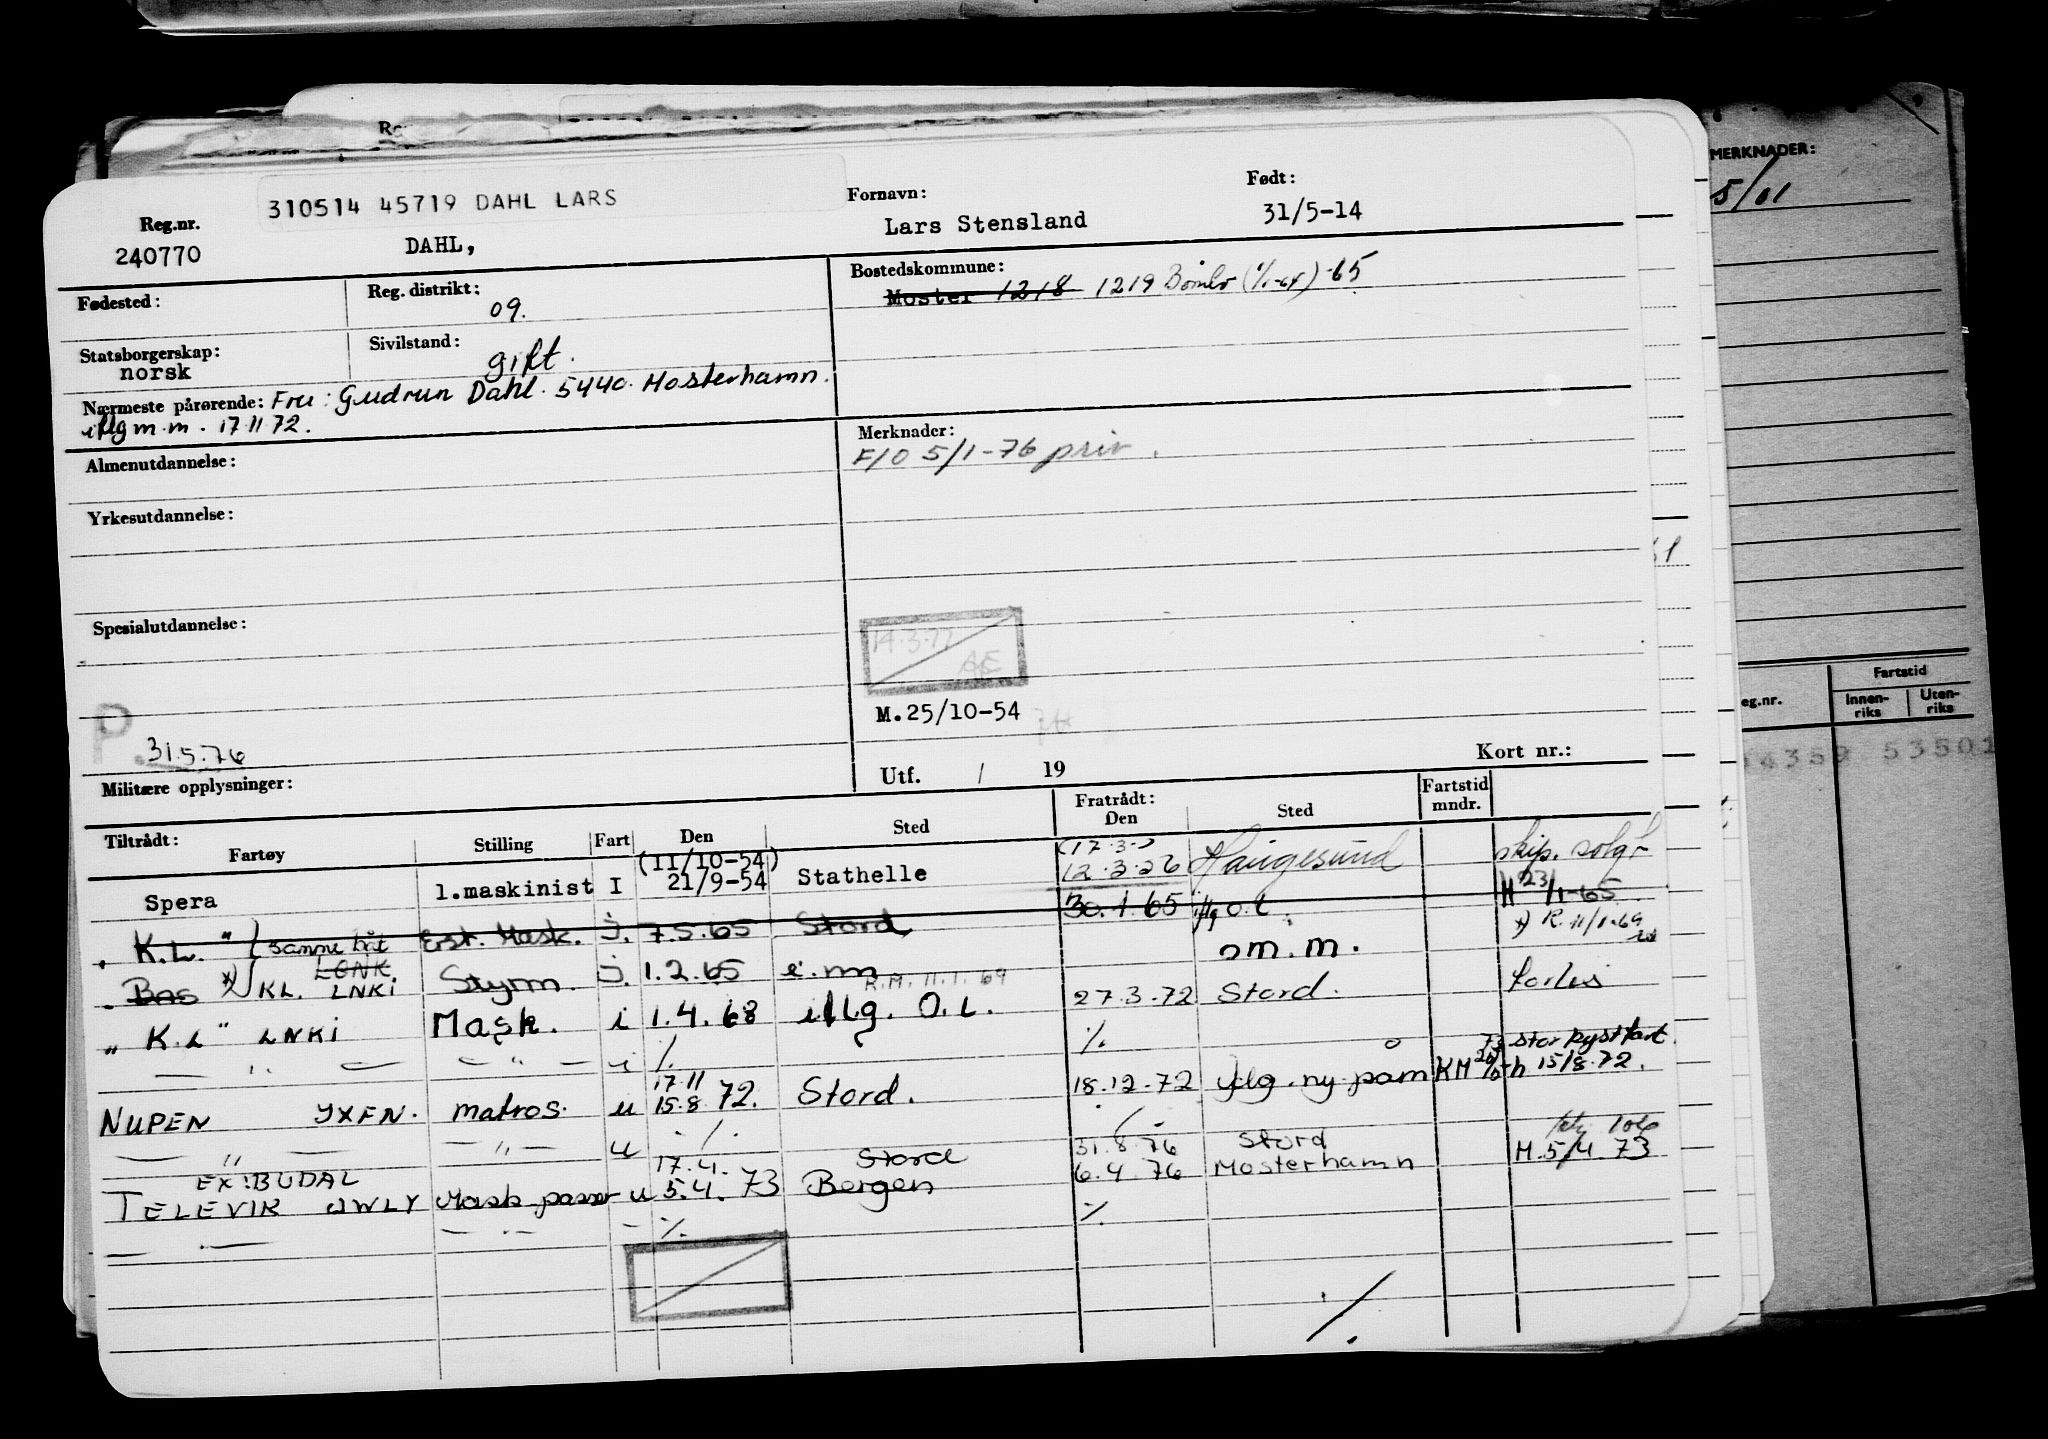 MERKNADER:
5/61
310514 45719 DAHL LARS
Reg.nr.
240770
DAHL,
Fornavn:
Lars Stensland
Født:
31/5-14
Fødested:
Reg. distrikt:
09.
Bostedskommune:
Moster 1218 1219 Bømlo (1/1-64) -65
Statsborgerskap:
norsk
Sivilstand:
gift.
Nærmeste pårørende: Fru: Gudrun Dahl. 5440. Mosterhamn.
iflg m.m. 17 11 72.
Almenutdannelse:
Merknader:
F/O 5/1-76 priv.
Yrkesutdannelse:
Spesialutdannelse:
14.3.77
AE
M.25/10-54
P.
31.5.76
Militære opplysninger:
Utf. / 19
Kort nr.:
Tiltrådt:
Fartøy Stilling Fart Den Sted Fratrådt: Den Sted Fartstid mndr.
Spera 1.maskinist I (11/10-54) 21/9-54 Stathelle Haugesund skip. solgt
"K.L." (samme båt Erst. Mask. i. 7.5.65 Stord 30.1.65 iflg o.l. M 23/1-65
*) R. 11/1-69
Bas *) KL. LNKI Styrm. i. 1.2.65 e.m. R.M. 11.1.69 m.m.
"K.L" LNKI Mask. i 1.4.68 iflg. O.L. 27.3.72 Stord. forlis
— " — — " — i ./. ./. stor kystfart
NUPEN JXFN. matros. u 17.11 15.8.72. Stord. 18.12.72 iflg. ny påm KM h 15/8.72.
— " — — " — u ./. ./.
EX: BUDAL
TELEVIK JWLY Mask.passer u 17.4. 5.4.73 Stord Bergen 31.8.76 6.4.76 Stord Mosterhamn M.5/4.73
— " — — " — ./. ./.
./.
eg.nr.
Fartstid
Innen-riks
Uten-riks
4359 53501